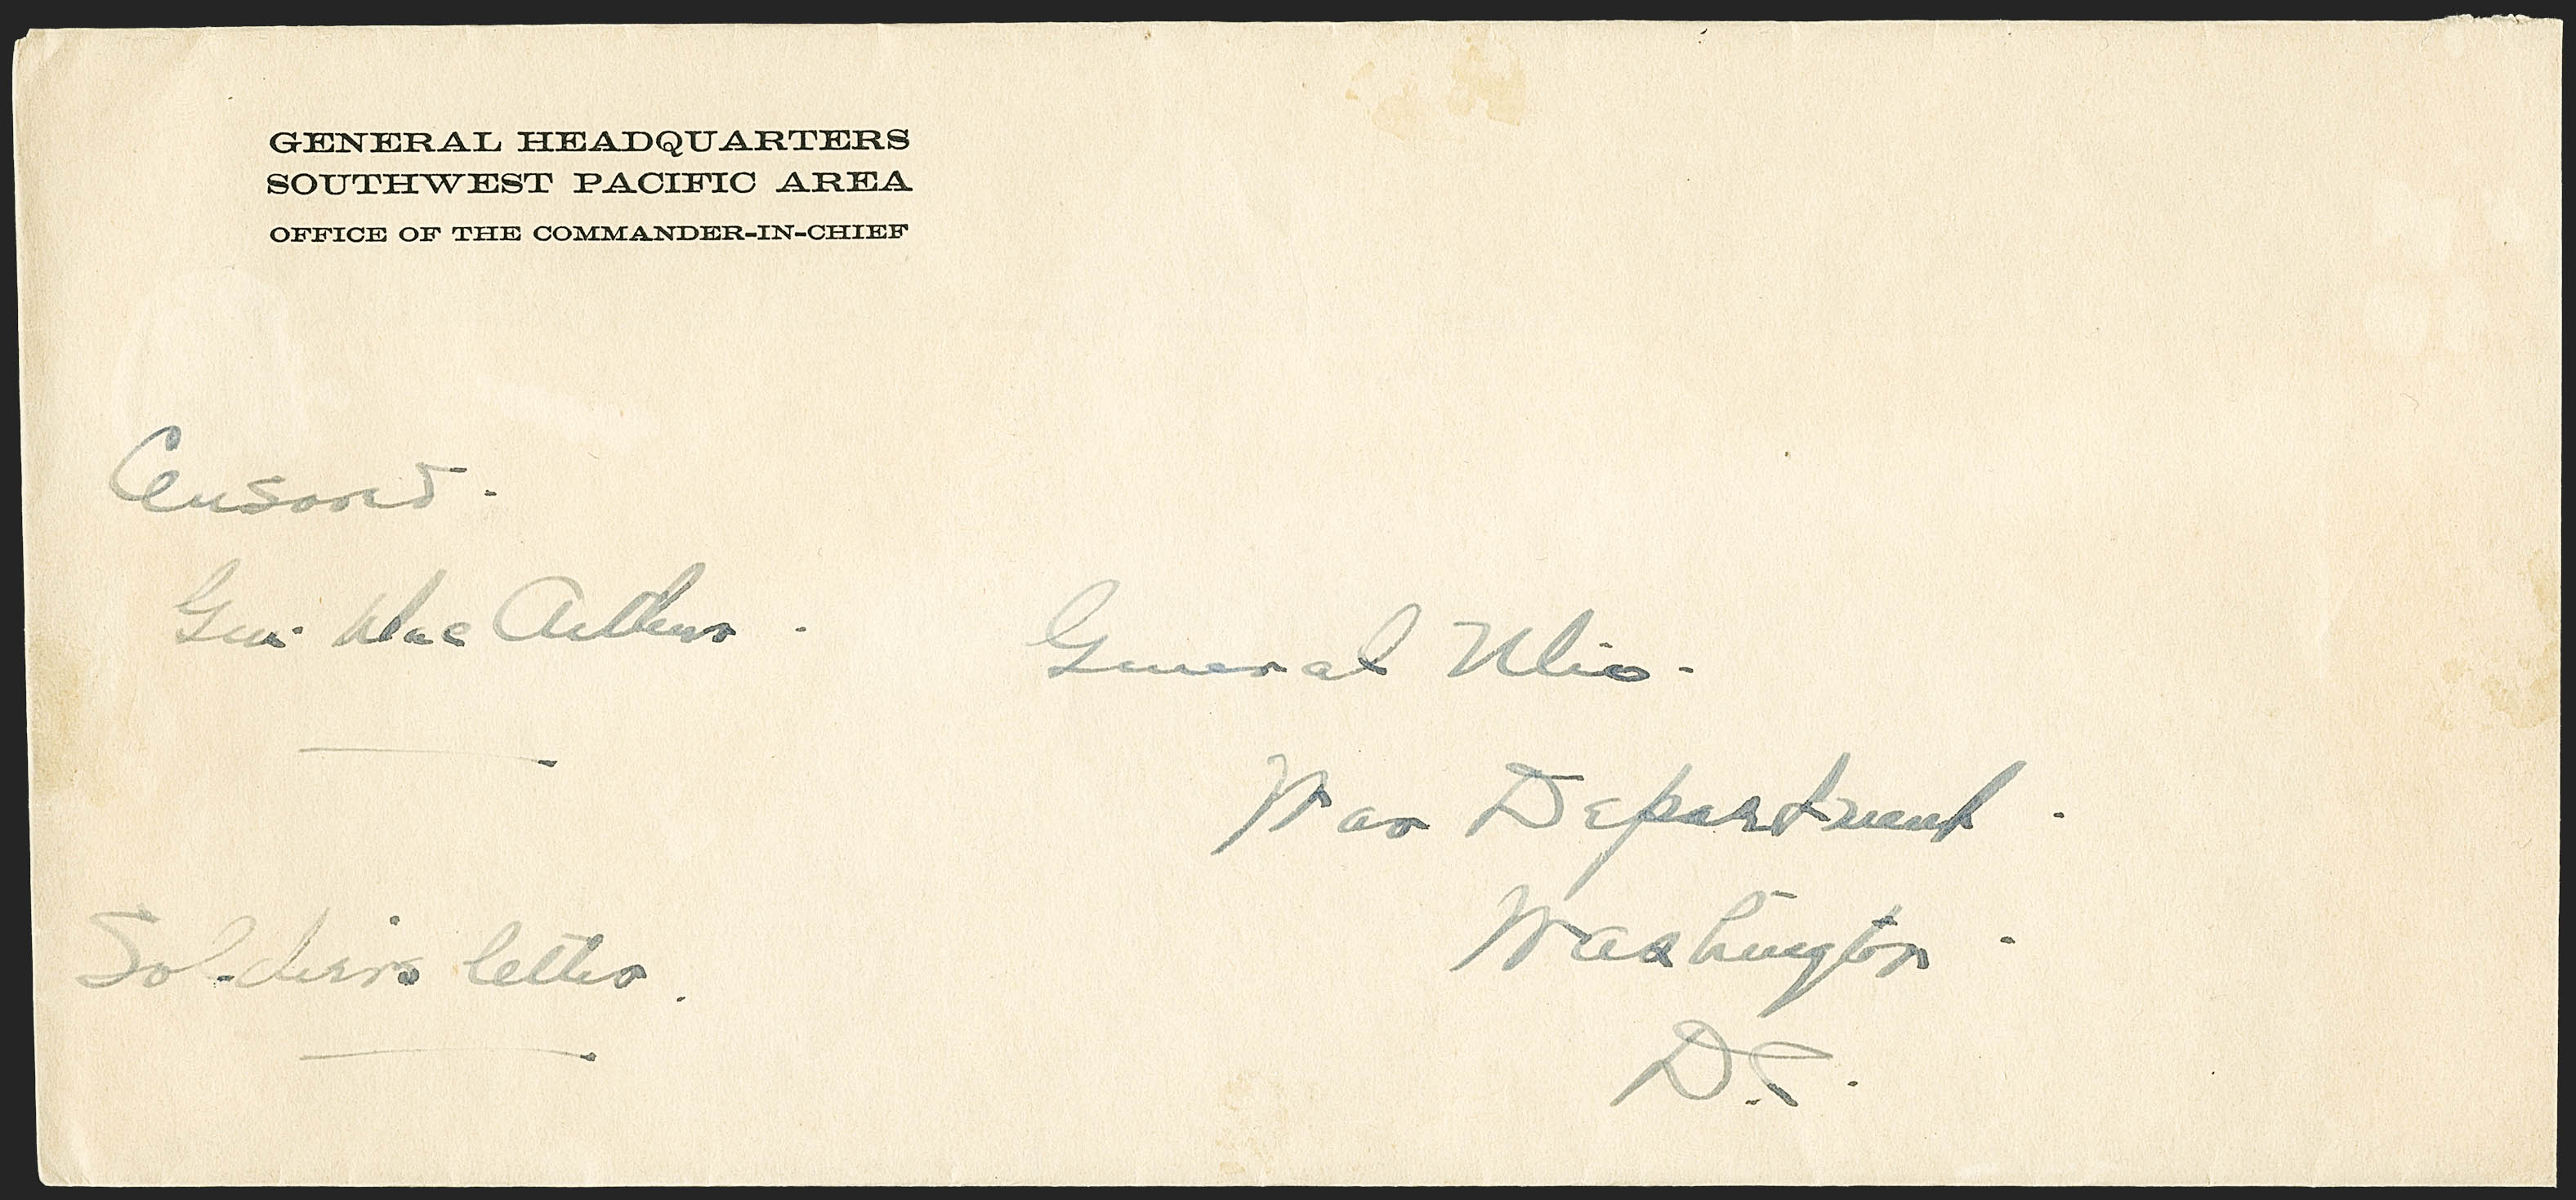 GENERAL HEADQUARTERS
SOUTHWEST PACIFIC AREA
OFFICE OF THE COMMANDER-IN-CHIEF
Censored.
Gen. MacArthur.
General Ulio.
War Department.
Washington.
D.C.
Soldiers letter.